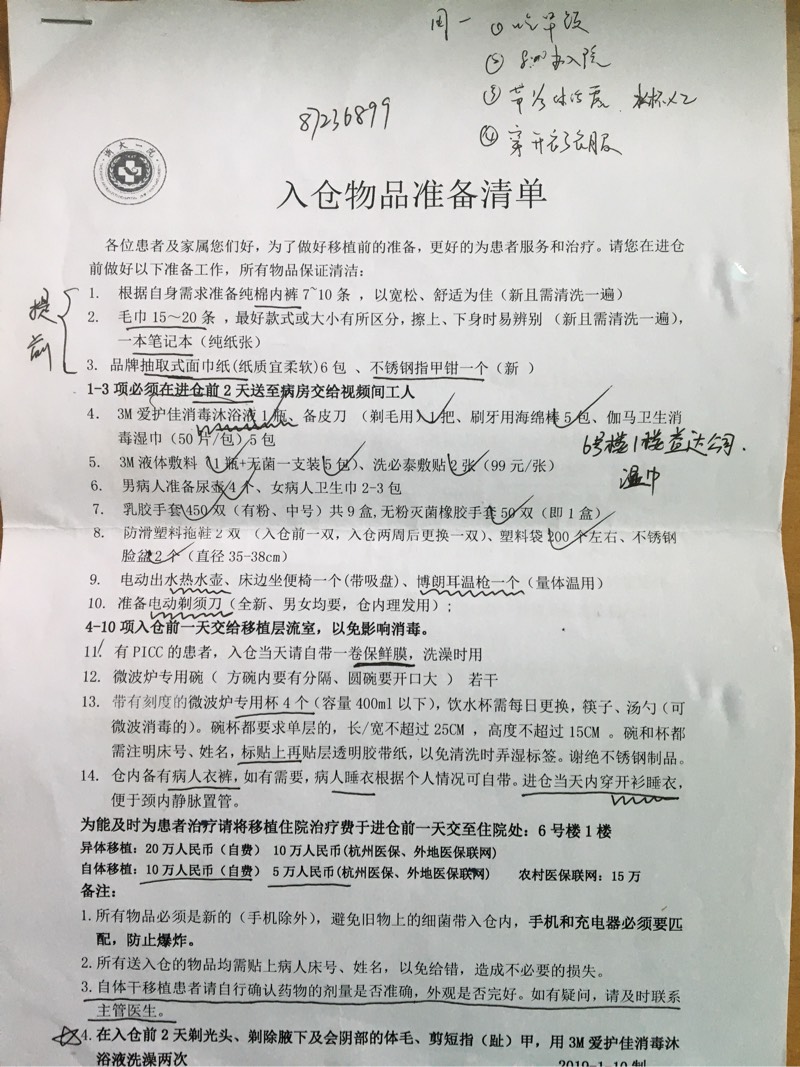 周一 ① 吃早饭
② 办入院
③
④ 穿开衫衣服
87236899
浙大一院
入仓物品准备清单
各位患者及家属您们好，为了做好移植前的准备，更好的为患者服务和治疗。请您在进仓
前做好以下准备工作，所有物品保证清洁：
提前
1. 根据自身需求准备纯棉内裤 7~10 条 ，以宽松、舒适为佳（新且需清洗一遍）
2. 毛巾 15～20 条 ，最好款式或大小有所区分，擦上、下身时易辨别 （新且需清洗一遍），
一本笔记本（纯纸张）
3. 品牌抽取式面巾纸(纸质宜柔软)6 包 、不锈钢指甲钳一个（新 ）
1-3 项必须在进仓前 2 天送至病房交给视频间工人
4. 3M 爱护佳消毒沐浴液 1 瓶、备皮刀 （剃毛用）1 把、刷牙用海绵棒 5 包、伽马卫生消
毒湿巾（50 片/包）5 包
6号楼1楼益达公司.
湿巾
5. 3M 液体敷料 （1 瓶+无菌一支装 5 包）、洗必泰敷贴 2 张（99 元/张）
6. 男病人准备尿壶 4 个、女病人卫生巾 2-3 包
7. 乳胶手套 450 双（有粉、中号）共 9 盒, 无粉灭菌橡胶手套 50 双（即 1 盒）
8. 防滑塑料拖鞋 2 双 （入仓前一双，入仓两周后更换一双）、塑料袋 200 个左右、不锈钢
脸盆 2 个（直径 35-38cm）
9. 电动出水热水壶、床边坐便椅一个(带吸盘)、博朗耳温枪一个（量体温用）
10. 准备电动剃须刀（全新、男女均要，仓内理发用）;
4-10 项入仓前一天交给移植层流室，以免影响消毒。
11. 有 PICC 的患者，入仓当天请自带一卷保鲜膜，洗澡时用
12. 微波炉专用碗（ 方碗内要有分隔、圆碗要开口大 ） 若干
13. 带有刻度的微波炉专用杯 4 个（容量 400ml 以下），饮水杯需每日更换，筷子、汤勺（可
微波消毒的）。碗杯都要求单层的，长/宽不超过 25CM ，高度不超过 15CM 。碗和杯都
需注明床号、姓名，标贴上再贴层透明胶带纸，以免清洗时弄湿标签。谢绝不锈钢制品。
14. 仓内备有病人衣裤，如有需要，病人睡衣根据个人情况可自带。进仓当天内穿开衫睡衣，
便于颈内静脉置管。
为能及时为患者治疗请将移植住院治疗费于进仓前一天交至住院处：6 号楼 1 楼
异体移植：20 万人民币（自费） 10 万人民币(杭州医保、外地医保联网)
自体移植：10 万人民币（自费） 5 万人民币(杭州医保、外地医保联网) 农村医保联网：15 万
备注：
1.所有物品必须是新的（手机除外），避免旧物上的细菌带入仓内，手机和充电器必须要匹
配，防止爆炸。
2.所有送入仓的物品均需贴上病人床号、姓名，以免给错，造成不必要的损失。
3.自体干移植患者请自行确认药物的剂量是否准确，外观是否完好。如有疑问，请及时联系
主管医生。
4.在入仓前 2 天剃光头、剃除腋下及会阴部的体毛、剪短指（趾）甲，用 3M 爱护佳消毒沐
浴液洗澡两次 2019-1-10 制